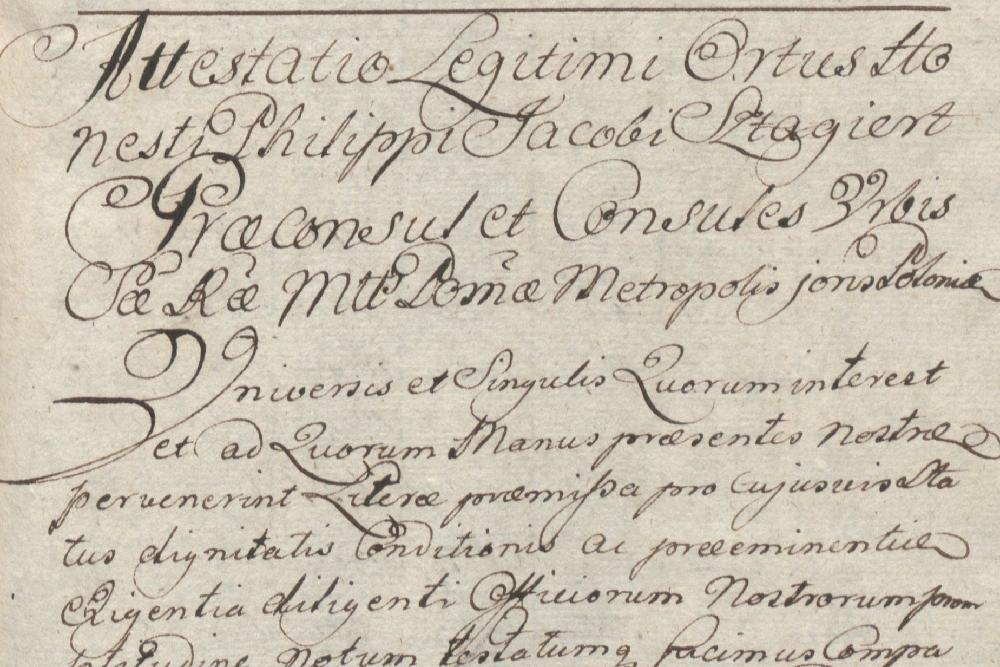 Attestatio Legitimi Ortus Ho
nesti Philippi Jacobi Sztagiert
Præconsul et Consules Urbis
Sæ Ræ Mttis Metropolis Poloniæ
Universis et Singulis Quorum interest
et ad Quorum Manus præsentes nostræ
pervenerint Literæ præmissa pro cujusvis Sta
tus dignitatis Conditionis ac præeminentiæ
Exigentia diligenti Officiorum Nostrorum prom
ptitudine notum testatumq facimus Compa